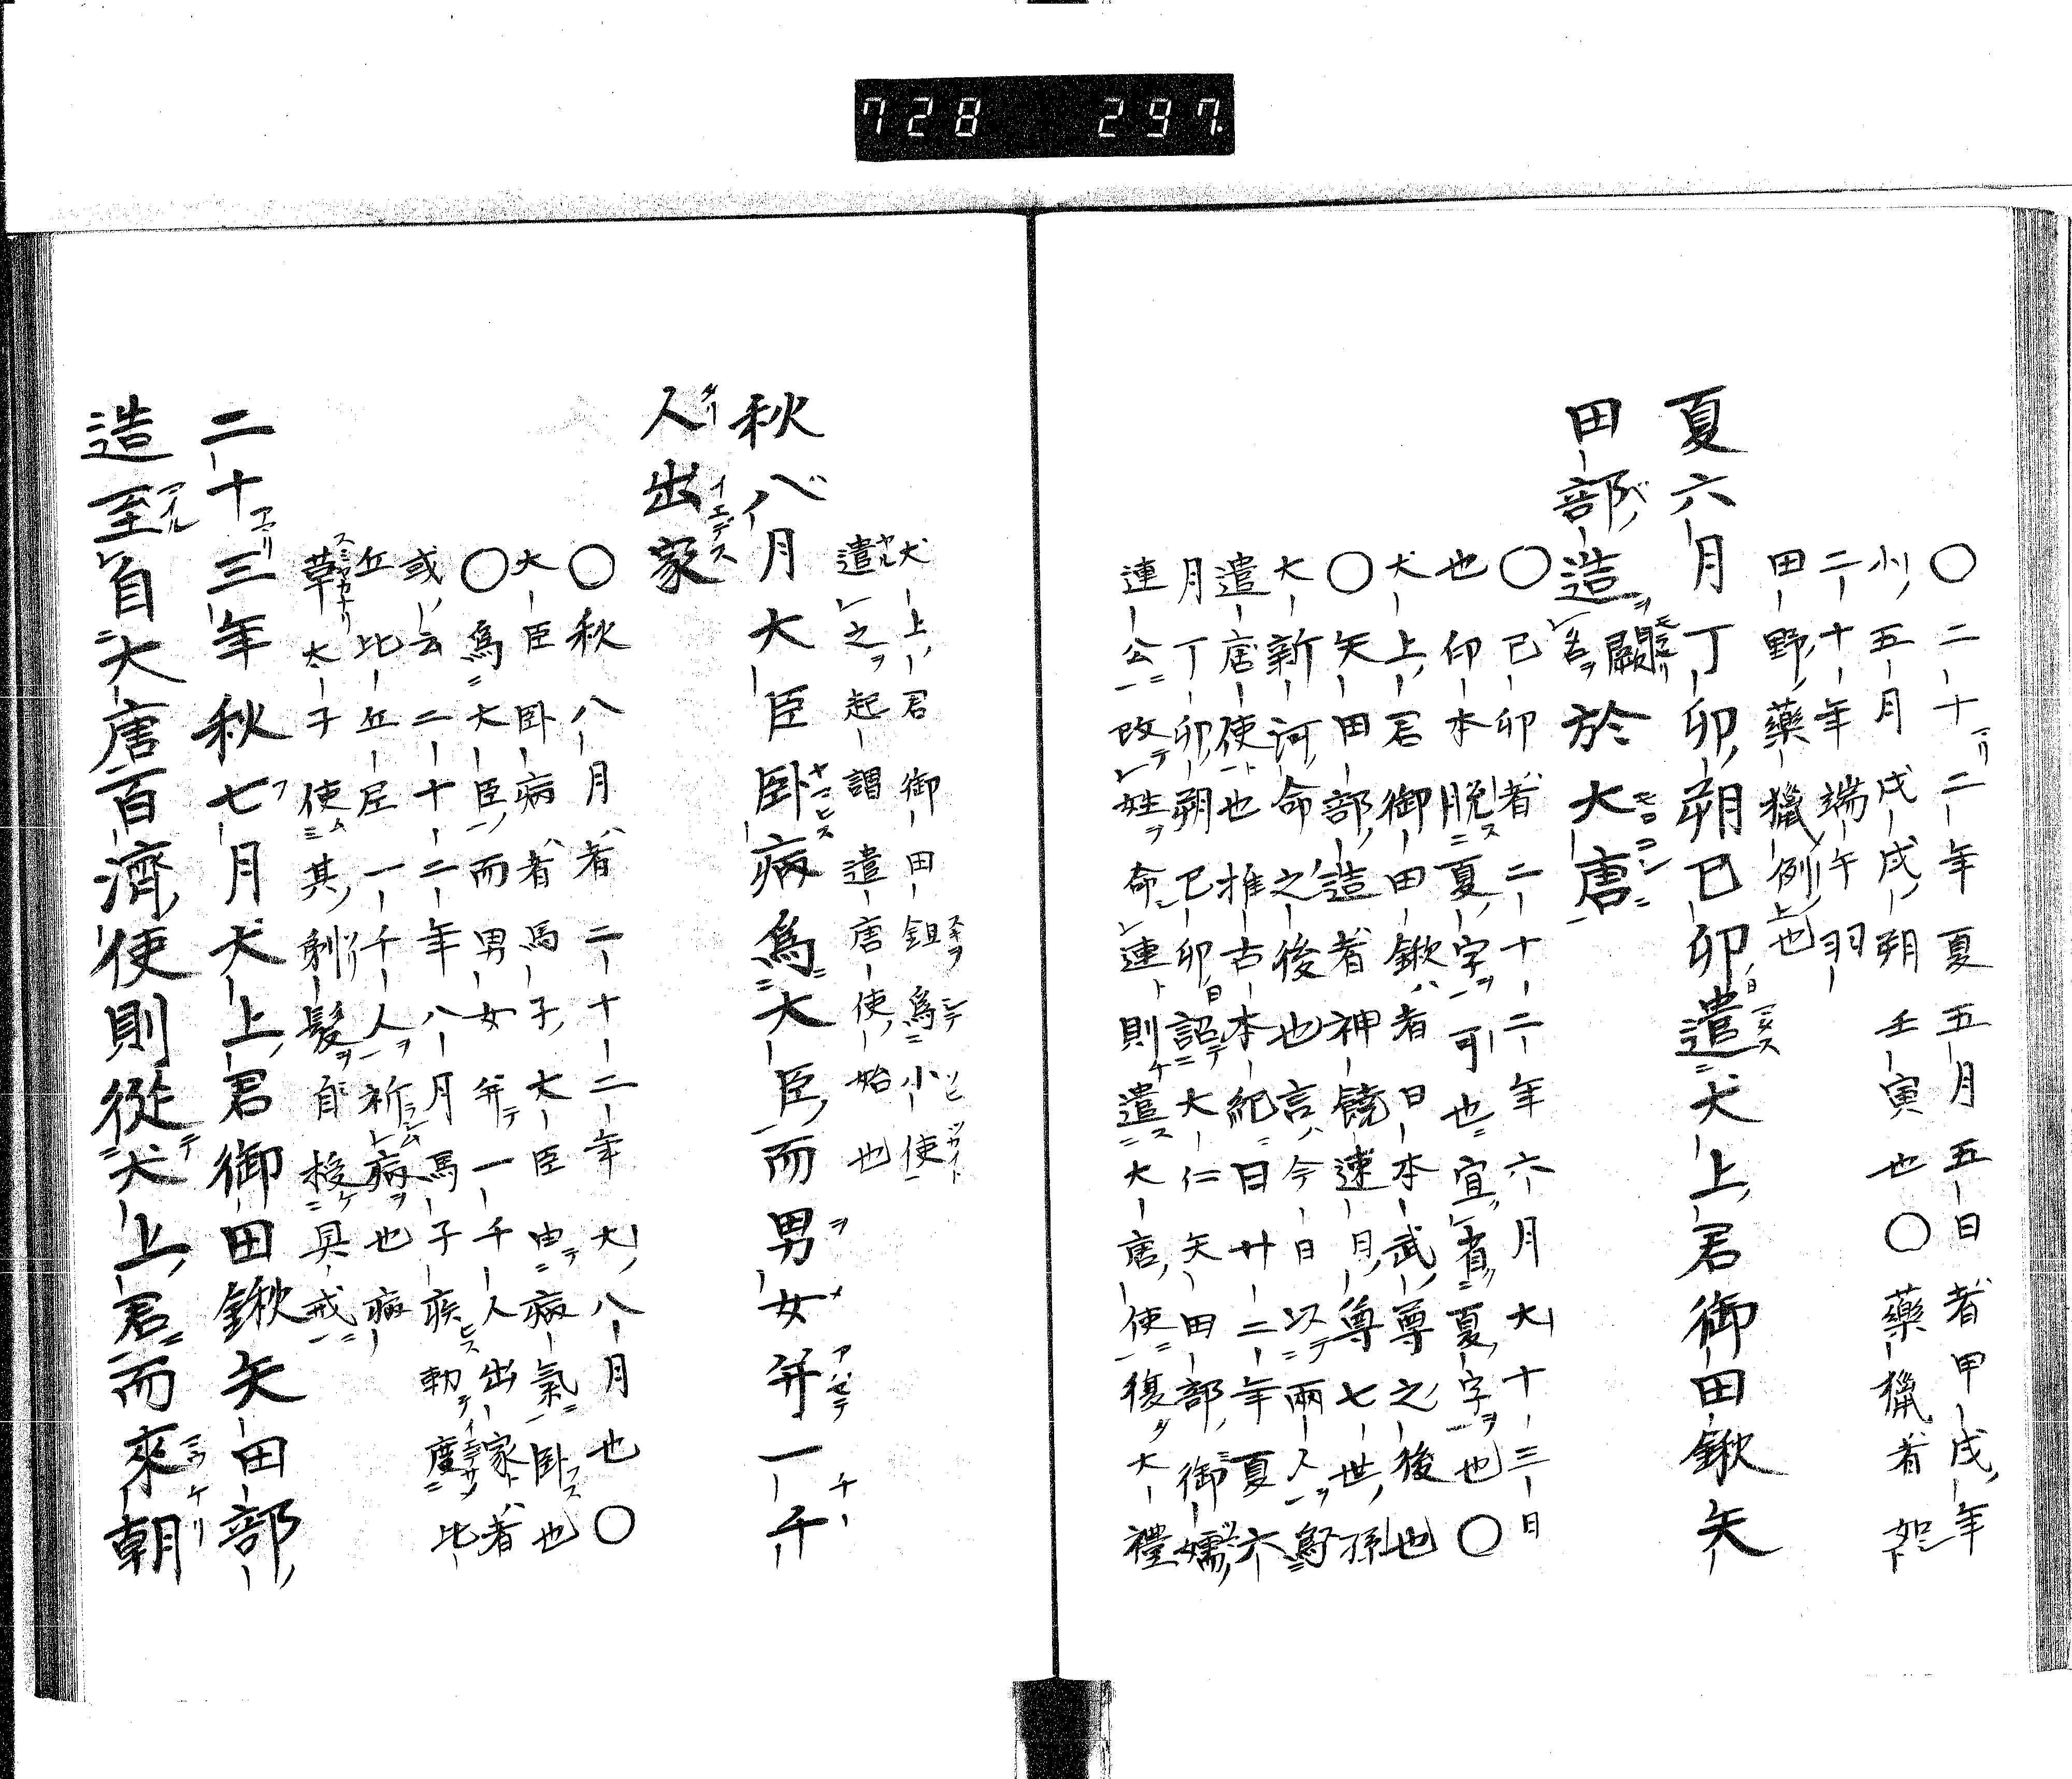 728 297
○二十二年夏五月五日者甲戌年
小五月戊戌朔壬寅也○藥獵者如
二十年端午羽
田野藥獵例也
夏六月丁卯朔已卯遣犬上君御田鍬矢
田部造 闕名 於大唐
○己卯者二十二年六月大十三日
也印本脱夏字可也宜省夏字也○
犬上君御田鍬者日本武尊之後也
○矢田部造者神饒速日尊七世孫
大新河命之後也言今日以兩人爲
遣唐使也推古本紀曰廿二年夏六
月丁卯朔已卯詔大仁矢田部御嬬
連公改姓命連則遣大唐使復大禮
犬上君御田鉏爲小使
遣之起謂遣唐使始也
秋八月大臣卧病爲大臣而男女并一千
人出家
○秋八月者二十二年大八月也○
大臣卧病者馬子大臣由病氣卧也
○爲大臣而男女并一千人出家者
或云二十二年八月馬子疾勅度比
丘比丘尼一千人祈病也癈
草太子使其剃髮自授具戒
二十三年秋七月犬上君御田鍬矢田部
造至自大唐百濟使則從犬上君而來朝